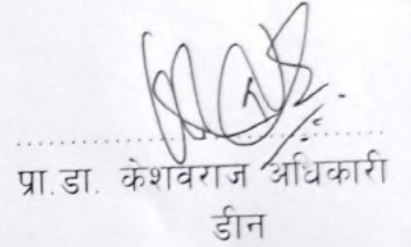 प्रा.डा. केशवराज अधिकारी
डीन